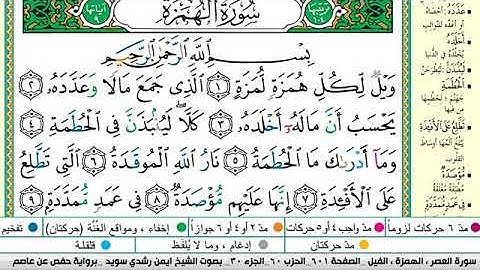 سُورَةُ الْهُمَزَةِ
بِسْمِ اللَّهِ الرَّحْمَٰنِ الرَّحِيمِ
وَيْلٌ لِّكُلِّ هُمَزَةٍ لُّمَزَةٍ ١ الَّذِي جَمَعَ مَالًا وَعَدَّدَهُ ٢
يَحْسَبُ أَنَّ مَالَهُ أَخْلَدَهُ ٣ كَلَّا لَيُنبَذَنَّ فِي الْحُطَمَةِ ٤
وَمَا أَدْرَاكَ مَا الْحُطَمَةُ ٥ نَارُ اللَّهِ الْمُوقَدَةُ ٦ الَّتِي تَطَّلِعُ
عَلَى الْأَفْئِدَةِ ٧ إِنَّهَا عَلَيْهِم مُّؤْصَدَةٌ ٨ فِي عَمَدٍ مُّمَدَّدَةٍ ٩
مدّ ٦ حركات لزوماً مدّ ٢ أو ٤ أو ٦ جوازاً إخفاء، ومواقع الغُنَّة (حركتان) تفخيم
مدّ واجب ٤ أو ٥ حركات مدّ حركتان إدغام، وما لا يُلفَظ قلقلة
سورة العصر، الهمزة، الفيل - الصفحة ٦٠١ الحزب ٦٠ الجزء ٣٠ - بصوت الشيخ ايمن رشدي سويد - برواية حفص عن عاصم